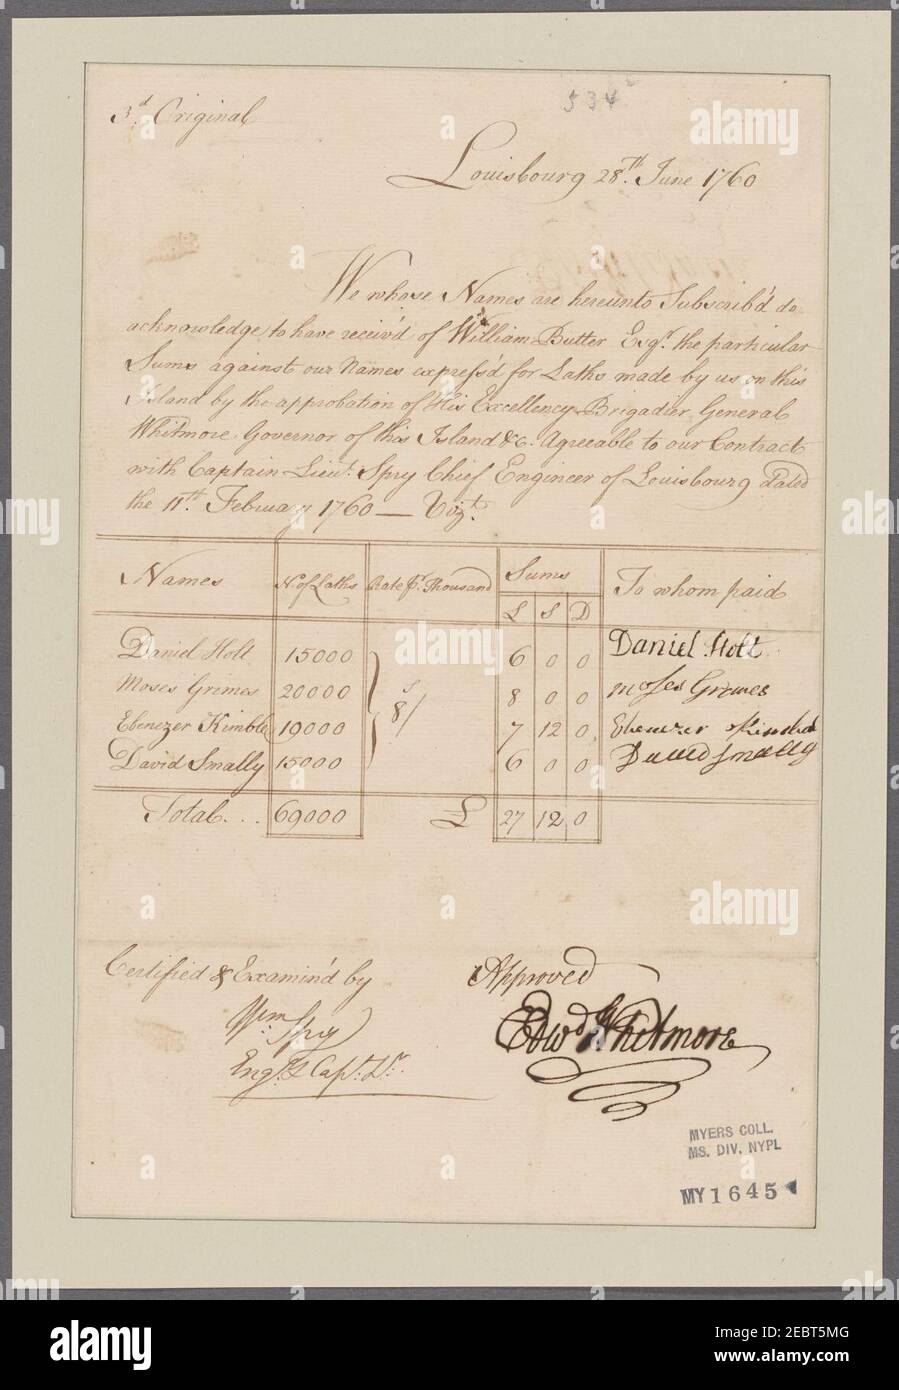 534
3.d Original
Louisbourg 28.Th June 1760
We whose Names are hereunto Subscrib'd do
acknowledge to have receiv'd of William Butler Esqr. the particular
Sums against our Names express'd for Laths made by us on this
Island by the approbation of His Excellency Brigadier General
Whitmore Governor of this Island &c. Agreeable to our Contract
with Captain Lieut. Spry Chief Engineer of Louisbourg Dated
the 11th. February 1760 — Vizt.
Names No of Laths Rate pr. Thousand Sums To whom paid
L S D
Daniel Holt 15000 6 0 0 Daniel Holt
Moses Grimes 20000 8 0 0 Moses Grimes
s
8/
Ebenezer Kimble 19000 7 12 0 Ebenezer
David Smally 15000 6 0 0 David Smally
Total... 69000 £ 27 12 0
Certified & Examin'd by
Approved
Wm Spry
Edwd Whitmore
Engr. & Capt. Lr.
MYERS COLL.
MS. DIV. NYPL
MY1645
alamy
Image ID: 2EBT5MG
www.alamy.com